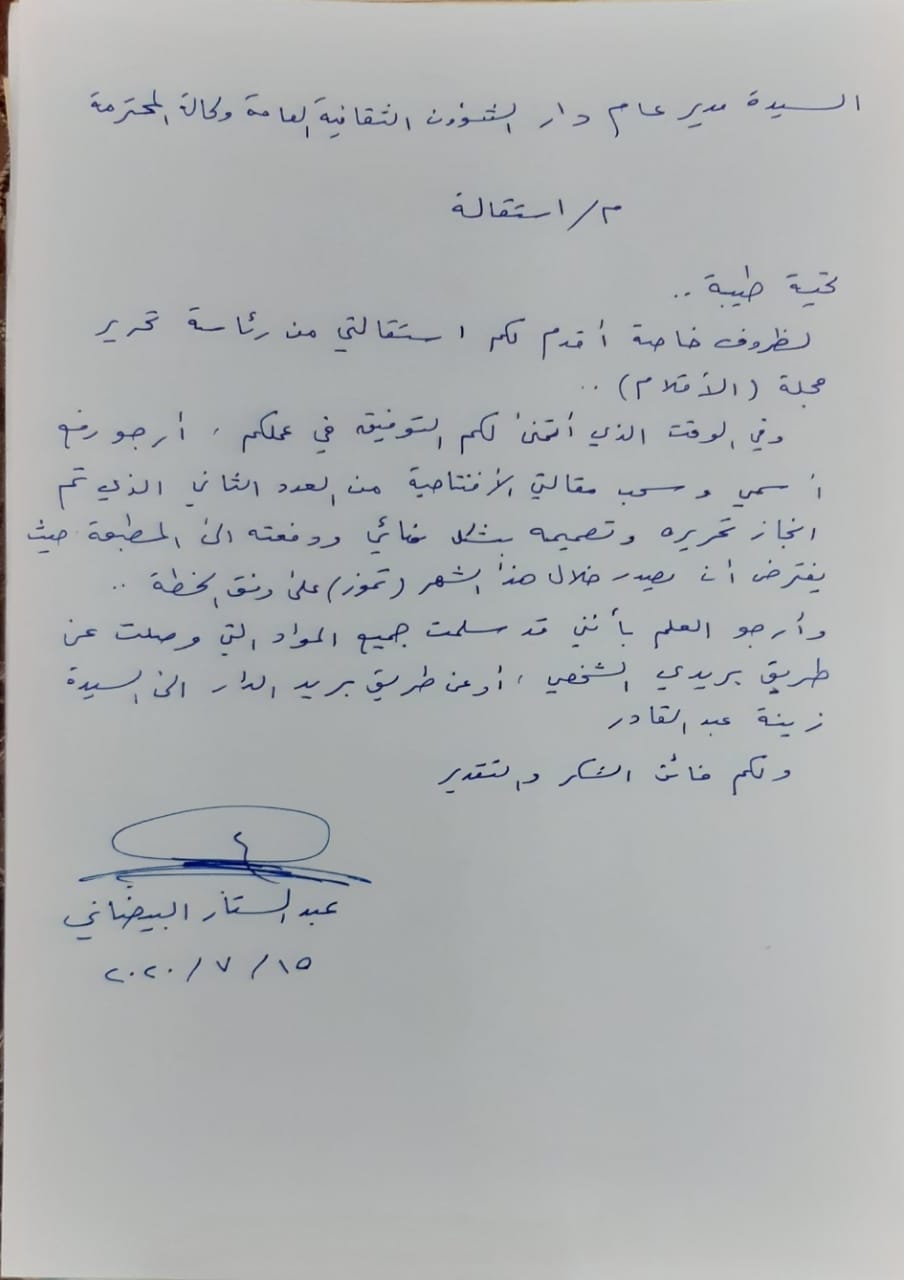 السيدة مدير عام دار الشؤون الثقافية العامة وكالة المحترمة
م/ استقالة
تحية طيبة ..
لظروف خاصة أقدم لكم استقالتي من رئاسة تحرير
مجلة (الأقلام) ..
وفي الوقت الذي أتمنى لكم التوفيق في عملكم ، أرجو رفع
أسمي وسحب مقالتي الأفتتاحية من العدد الثاني الذي تم
انجاز تحريره وتصميمه بشكل نهائي ودفعته الى المطبعة حيث
يفترض أن يصدر خلال هذا الشهر (تموز) على وفق الخطة ..
وأرجو العلم بأنني قد سلمت جميع المواد التي وصلت عن
طريق بريدي الشخصي ، أو عن طريق بريد الدار الى السيدة
زينة عبد القادر
ولكم فائق الشكر والتقدير
عبد الستار البيضاني
١٥ / ٧ / ٢٠٢٠